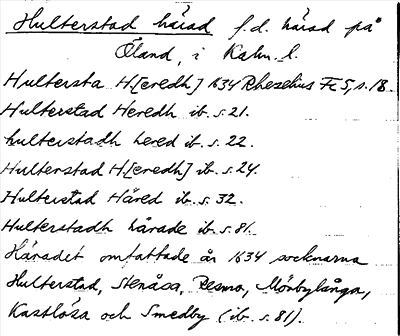 Hulterstad härad f.d. härad på
Öland, i Kalm. l.
Hultersta H.[eredh] 1634 Rhezelius Fc 5, s. 18.
Hulterstad Heredh ib. s. 21.
hulterstadh hered ib. s. 22.
Hulterstad H.[eredh] ib. s. 24.
Hulterstad Häred ib. s. 32.
Hulterstadh härade ib. s. 81.
Häradet omfattade år 1634 socknarna
Hulterstad, Stenåsa, Resmo, Mörbylånga,
Kastlösa och Smedby (ib. s. 81).